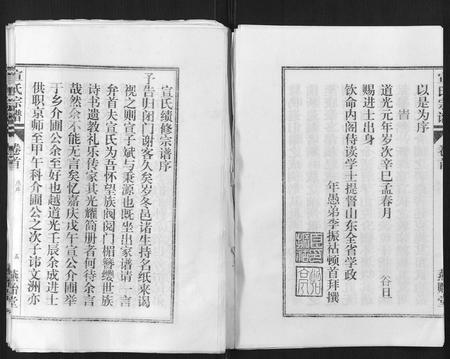 以是为序
旹
道光元年岁次辛巳孟春月
谷旦
赐进士出身
钦命内阁侍读学士提督山东全省学政
年愚弟李振祜顿首拜撰
宣氏宗谱
卷首
宣氏续修宗谱序
予告归闭门谢客久矣岁冬邑诸生持名纸来谒
视之则宣子斌与秉源也既坐出家谱请一言
弁首夫宣氏为吾怀望族阀阅门楣簪缨世族
诗书遗教礼乐传家其光耀简册者何待余言
哉然余不能无言矣忆嘉庆戊午宣公介圃举
于乡介圃公余至好也越道光壬辰余成进士
供职京师至甲午科介圃公之次子讳文洲亦